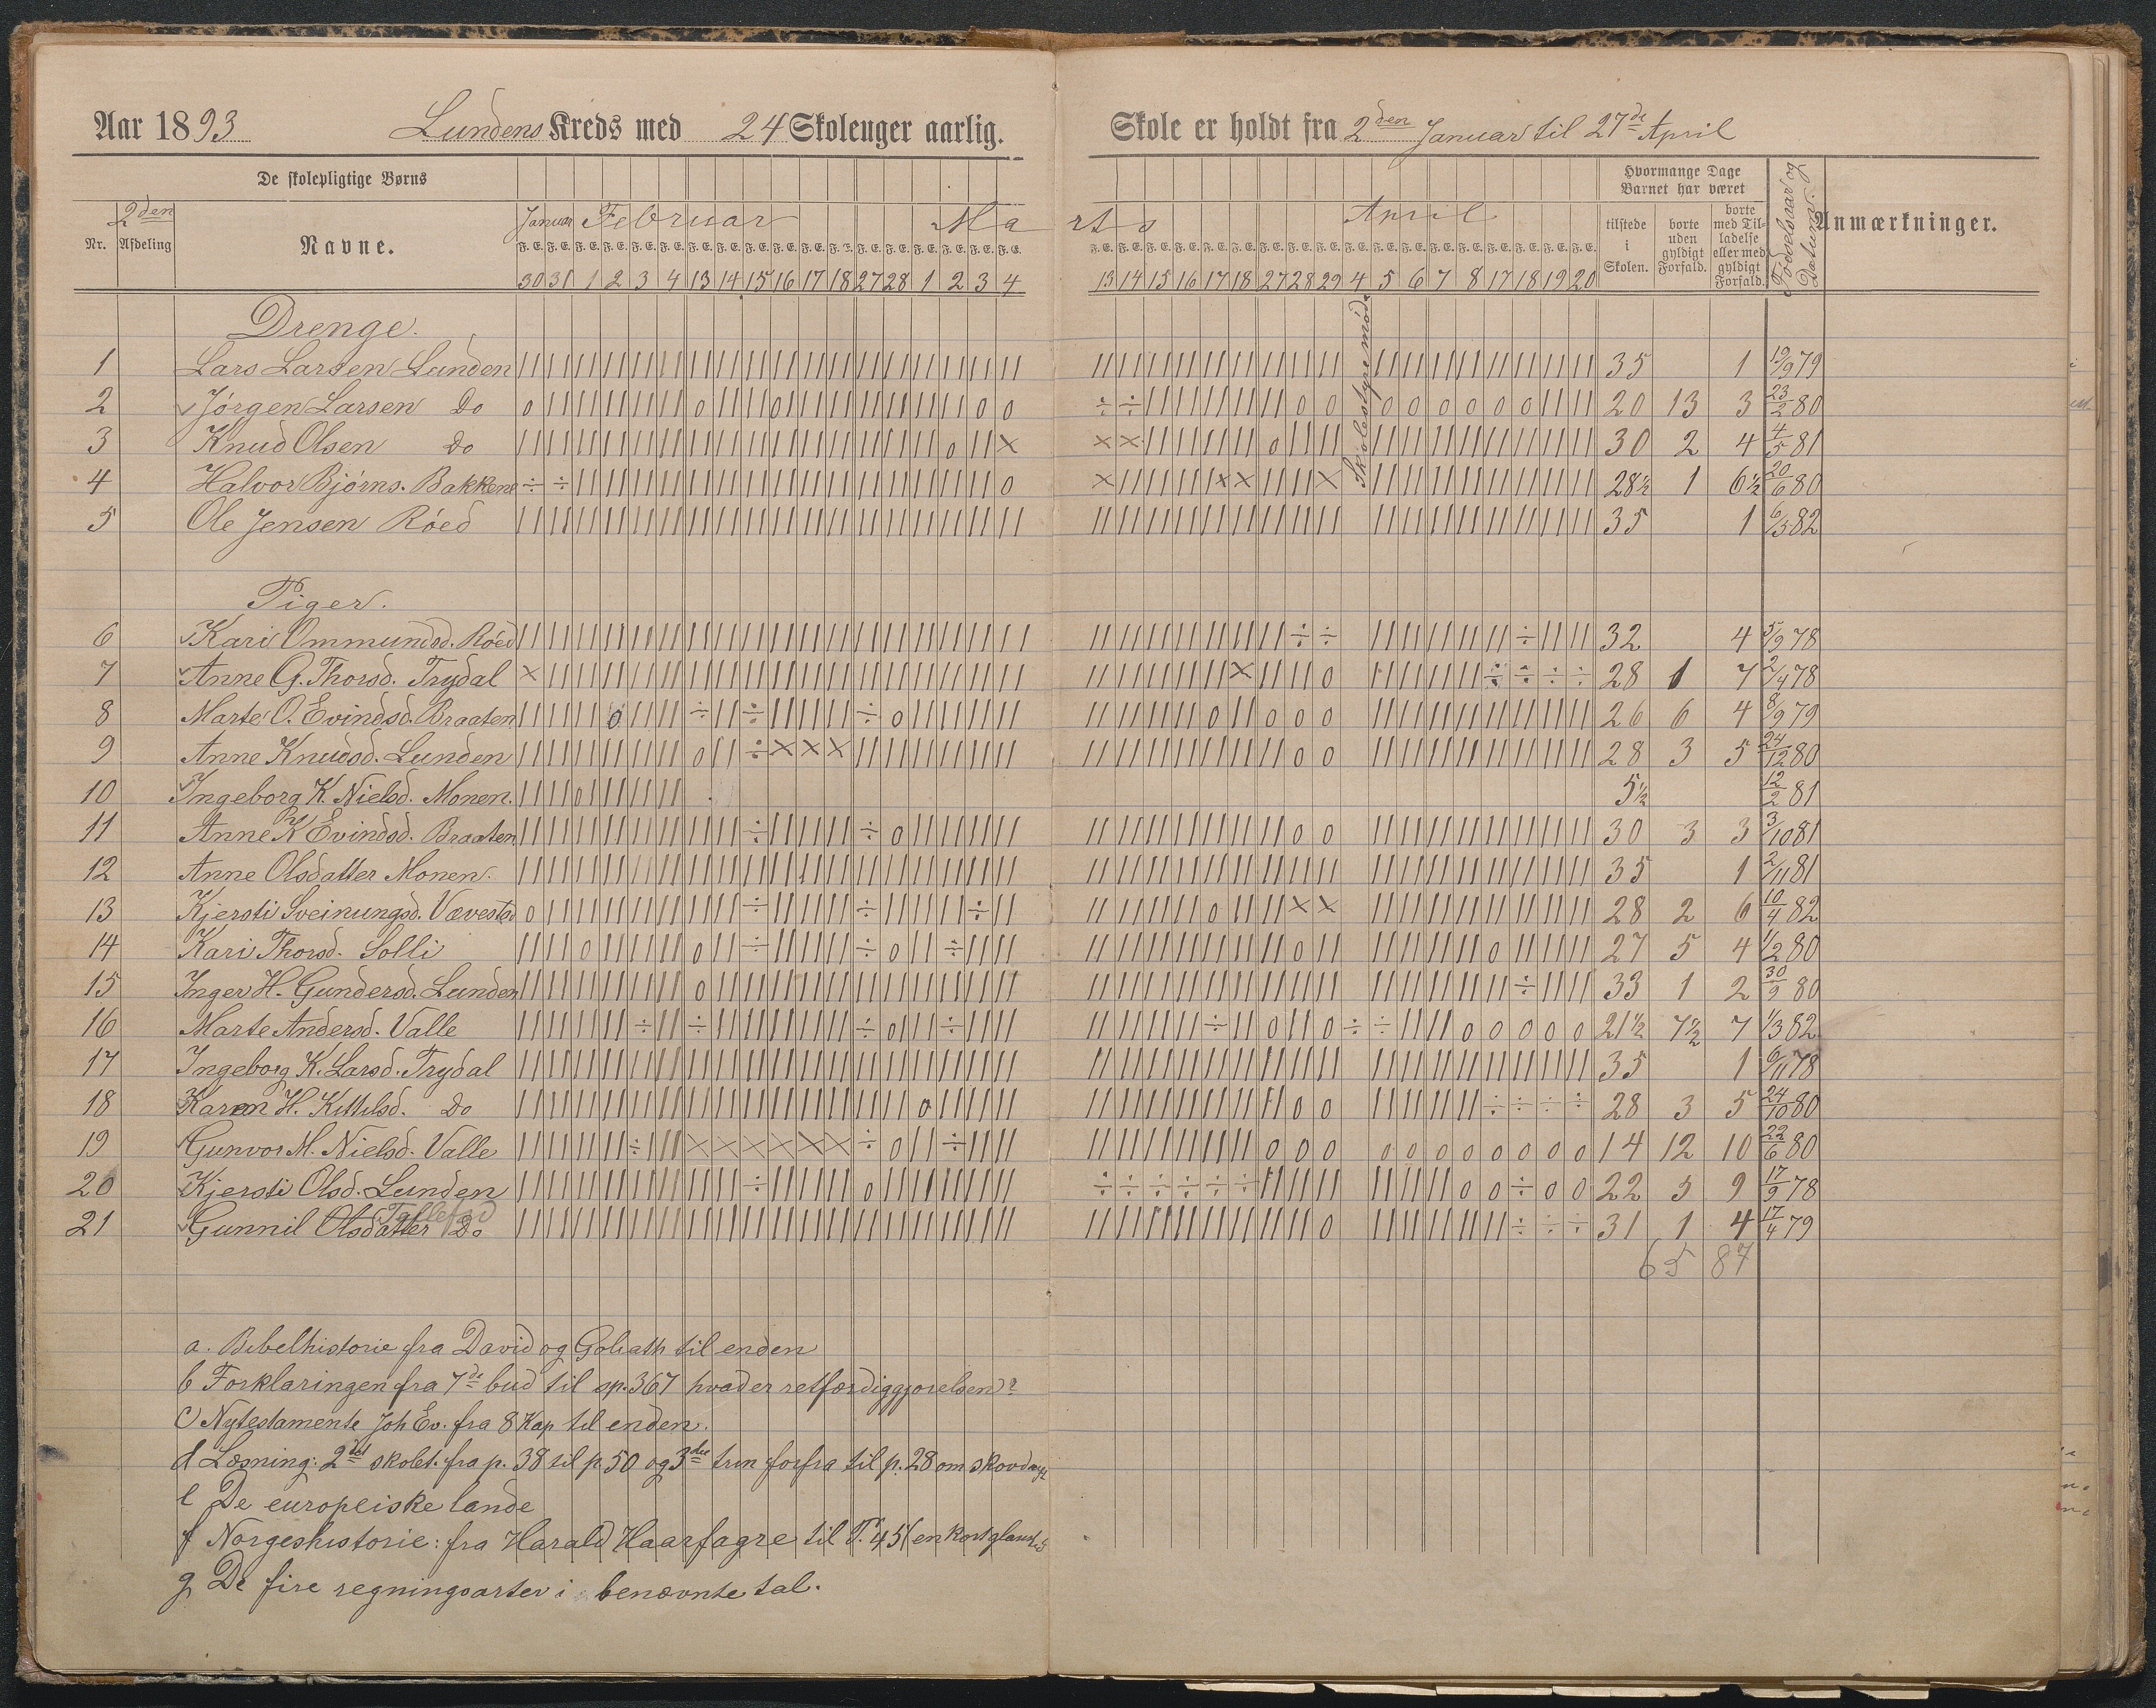 Aar 1893 Lundens Kreds med 24 Skoleuger aarlig. Skole er holdt fra 2den Januar til 27de April
De skolepligtige Børns
Nr. 2den Afdeling Navne.
Januar Februar Marts April
30 31 1 2 3 4 13 14 15 16 17 18 27 28 1 2 3 4 13 14 15 16 17 18 27 28 29 4 5 6 7 8 17 18 19 20
Hvormange Dage Barnet har været
tilstede i Skolen. borte uden gyldigt Forfald. borte med Tilladelse eller med gyldigt Forfald.
Fødselsaar og Datum
Anmærkninger.
Skolestyremøde
Drenge.
1 Lars Larsen Lunden 35 1 19/9 79
2 Jørgen Larsen Do 20 13 3 23/2 80
3 Knud Olsen Do 30 2 4 4/5 81
4 Halvor Bjørns. Bakkene 28½ 1 6½ 20/6 80
5 Ole Jensen Røed 35 1 6/5 82
Piger.
6 Kari Ommundsd. Røed 32 4 5/9 78
7 Anne G. Thorsd. Trydal 28 1 7 2/4 78
8 Marte O. Evindsd. Braaten 26 6 4 8/9 79
9 Anne Knudsd. Lunden 28 3 5 24/12 80
10 Ingeborg K. Nielsd. Monen. 5½ 12/2 81
11 Anne K Evindsd. Braaten 30 3 3 3/10 81
12 Anne Olsdatter Monen. 35 1 2/11 81
13 Kjersti Sveinungsd. Vævestad 28 2 6 10/4 82
14 Kari Thorsd. Solli 27 5 4 1/2 80
15 Inger H. Gundersd. Lunden 33 1 2 30/9 80
16 Marte Andersd. Valle 21½ 7½ 7 1/3 82
17 Ingeborg K. Larsd. Trydal 35 1 6/11 78
18 Karen H. Kittilsd. Do 28 3 5 24/10 80
19 Gunvor M. Nielsd. Valle 14 12 10 22/6 80
20 Kjersti Olsd. Lunden 22 5 9 17/9 78
21 Gunnil Olsdatter Do 31 1 4 17/4 79
65 87
a. Bibelhistorie fra David og Goliath til enden
b Forklaringen fra 7de bud til sp. 367 hvad er retfærdiggjørelsen?
c) Nytestamente Joh Ev. fra 8 Kap til enden.
d Læsning: 2det skolet. fra p. 38 til p 50 og 3die trin forfra til p. 28 om
e De europeiske lande
f Norgeshistorie: fra Harald Haarfagre til P. 45
g De fire regningsarter i benævnte tal.